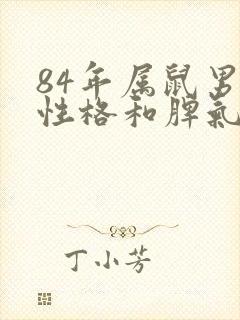 84年属鼠男
性格和脾氣
丁小芳